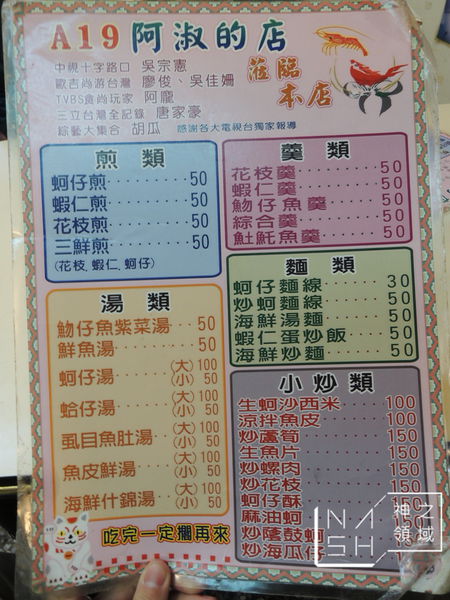 A19阿淑的店
蒞臨
本店
中視十字路口 吳宗憲
歐吉尚游台灣 廖俊、吳佳姍
TVBS食尚玩家 阿龐
三立台灣全記錄 唐家豪
綜藝大集合 胡瓜 感謝各大電視台獨家報導
煎類
蚵仔煎 50
蝦仁煎 50
花枝煎 50
三鮮煎 50
(花枝、蝦仁、蚵仔)
羹類
花枝羹 50
蝦仁羹 50
魩仔魚羹 50
綜合羹 50
𩵚魠魚羹 50
麵類
蚵仔麵線 30
炒蚵麵線 50
海鮮湯麵 50
蝦仁蛋炒飯 50
海鮮炒麵 50
湯類
魩仔魚紫菜湯 50
鮮魚湯 50
蚵仔湯 (大)100
(小) 50
蛤仔湯 (大)100
(小) 50
虱目魚肚湯 (大)100
(小) 50
魚皮鮮湯 (大)100
(小) 50
海鮮什錦湯 (大)100
(小) 50
小炒類
生蚵沙西米 100
涼拌魚皮 100
炒蘆筍 150
生魚片 150
炒螺肉 150
炒花枝 150
蚵仔酥 150
麻油蚵
炒蔭鼓蚵
炒海瓜仔
吃完一定擱再來
NASH 神之領域